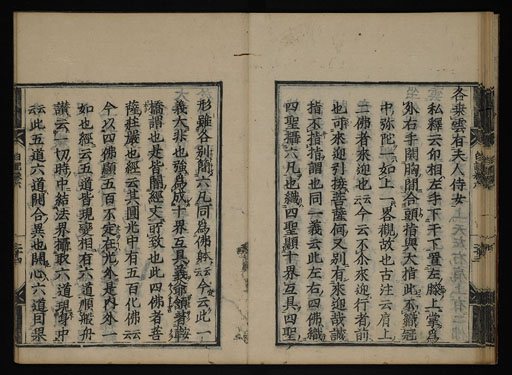 各乗雲有夫人侍女
私釋云印相左手下置左膝上掌爲
外右手開胸間合頭指與大指此不織冠
中弥陀一如上畧觀故也古注云肩上
二佛者來迎也云今云不尒來迎行者前
也可來迎引接菩薩何又別有來迎哉誠
指不指指謂也同一義云此左右四佛織
四聖攝六凡也織四聖顯十界互具四聖
形雖各別開六凡同爲佛躰云今云此一
義大非也強爲成十界互具義爺領著鞍
橋謂也是皆闇經文所致也此四佛者菩
薩莊嚴也經云其圓光中有五百化佛云
今以四佛顯五百不定在光外是内外一
如也經云五道皆現變相有六道順般舟
讃云一切時中結法界攝取六道現身中
云此五道六道開合異也開心六道目果